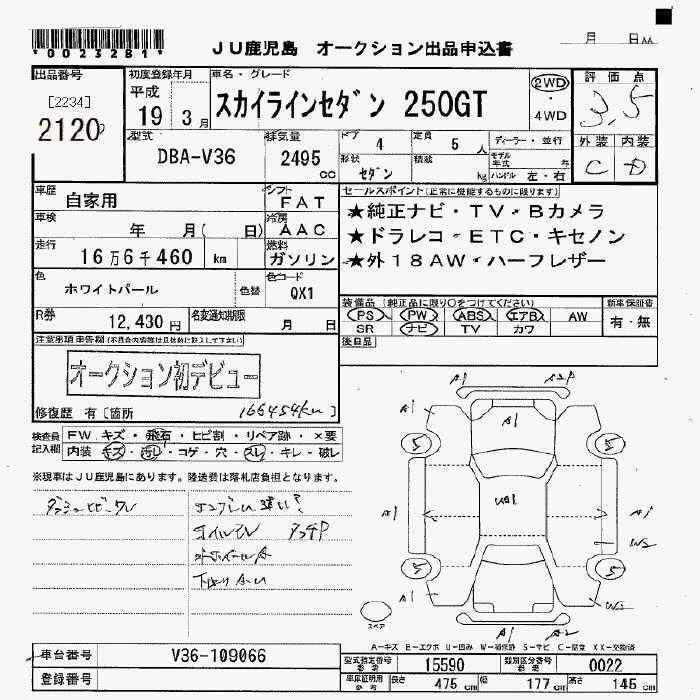 *0023281*
JU鹿児島 オークション出品申込書
月 日
出品番号
[2234]
2120
初度登録年月
平成
19 3月
車名・グレード
スカイラインセダン 250GT
2WD
・
4WD
評価点
3.5
外装 内装
C D
型式
DBA-V36
排気量
2495 cc
ドア 4
定員 5人
ディーラー・並行
形状 セダン
積載 kg
モデル年式 年
ハンドル 左・右
車歴 自家用
シフト FAT
車検 年 月( 日)
冷房 AAC
走行 16万6千460 km
燃料 ガソリン
色 ホワイトパール 色替
色コード QX1
R券 12,430円
名変通知期限 月 日
セールスポイント(正常に機能するものに限ります)
★純正ナビ・TV・Bカメラ
★ドラレコ・ETC・キセノン
★外18AW・ハーフレザー
装備品(純正品に限り○をつけてください)
PS PW ABS エアB AW
SR ナビ TV カワ
新車保証書
有・無
後日品
注意事項申告欄(不具合内容等は具体的に記入して下さい)
オークション初デビュー
修復歴 有〔箇所
166454km〕
検査員記入欄
FW キズ・飛石・ヒビ割・リペア跡・×要
内装 キズ・汚レ・コゲ・穴・スレ・キレ・破レ
※現車はJU鹿児島にあります。陸送費は落札店負担となります。
A1 A2P
A1 A1
5 5
A1 U01 A1
W2
5 5
A1 W2
スペア
A1 A2
A=キズ E=エクボ U=凹み W=補修跡 S=サビ C=腐食 XX=交換済
車台番号 V36-109066
登録番号
型式指定番号 参考 15590
類別区分番号 参考 0022
車庫証明用 参考 長さ 475cm 幅 177cm 高さ 145cm